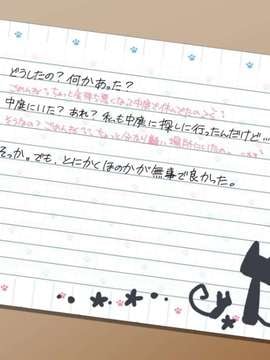 どうしたの？何かあった？
ごめんなさい、ちょっと気持ち悪くなって中庭で休んでたの
中庭にいた？あれ？私も中庭に探しに行ったんだけど…
そうなの？ごめんなさい、ちょっと分かり難い場所にいたの
そっか。でも、とにかくほのかが無事で良かった。